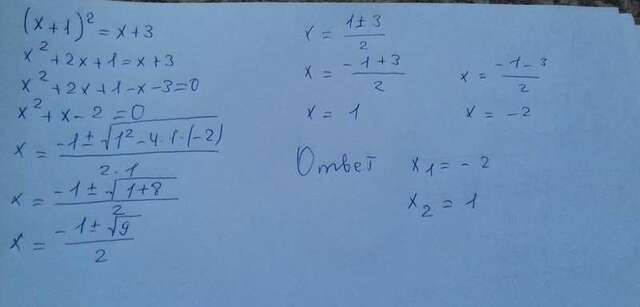 (x+1)² = x+3
x² + 2x + 1 = x + 3
x² + 2x + 1 - x - 3 = 0
x² + x - 2 = 0
x = (-1 ± √(1² - 4·1·(-2))) / (2·1)
x = (-1 ± √(1+8)) / 2
x = (-1 ± √9) / 2
x = (1 ± 3) / 2
x = (-1 + 3) / 2    x = (-1 - 3) / 2
x = 1    x = -2
Ответ x₁ = -2
x₂ = 1